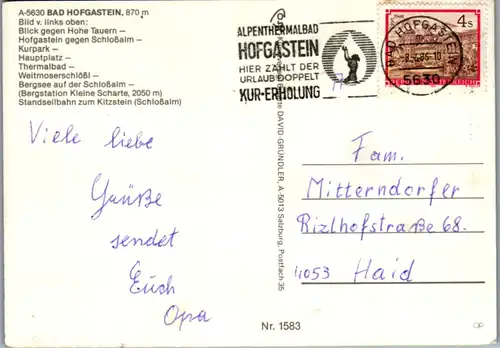 A-5630 BAD HOFGASTEIN, 870 m
Bild v. links oben:
Blick gegen Hohe Tauern –
Hofgastein gegen Schloßalm –
Kurpark –
Hauptplatz –
Thermalbad –
Weitmoserschlößl –
Bergsee auf der Schloßalm –
(Bergstation Kleine Scharte, 2050 m)
Standseilbahn zum Kitzstein (Schloßalm)
ALPENTHERMALBAD
HOFGASTEIN
HIER ZÄHLT DER
URLAUB DOPPELT
KUR-ERHOLUNG
BAD HOFGASTEIN
5630
4 S
Viele liebe
Grüße
sendet
Euch
Opa
DAVID GRÜNDLER, A 5013 Salzburg, Postfach 35
Fam.
Mitterndorfer
Rizlhofstraße 68.
4053 Haid
Nr. 1583